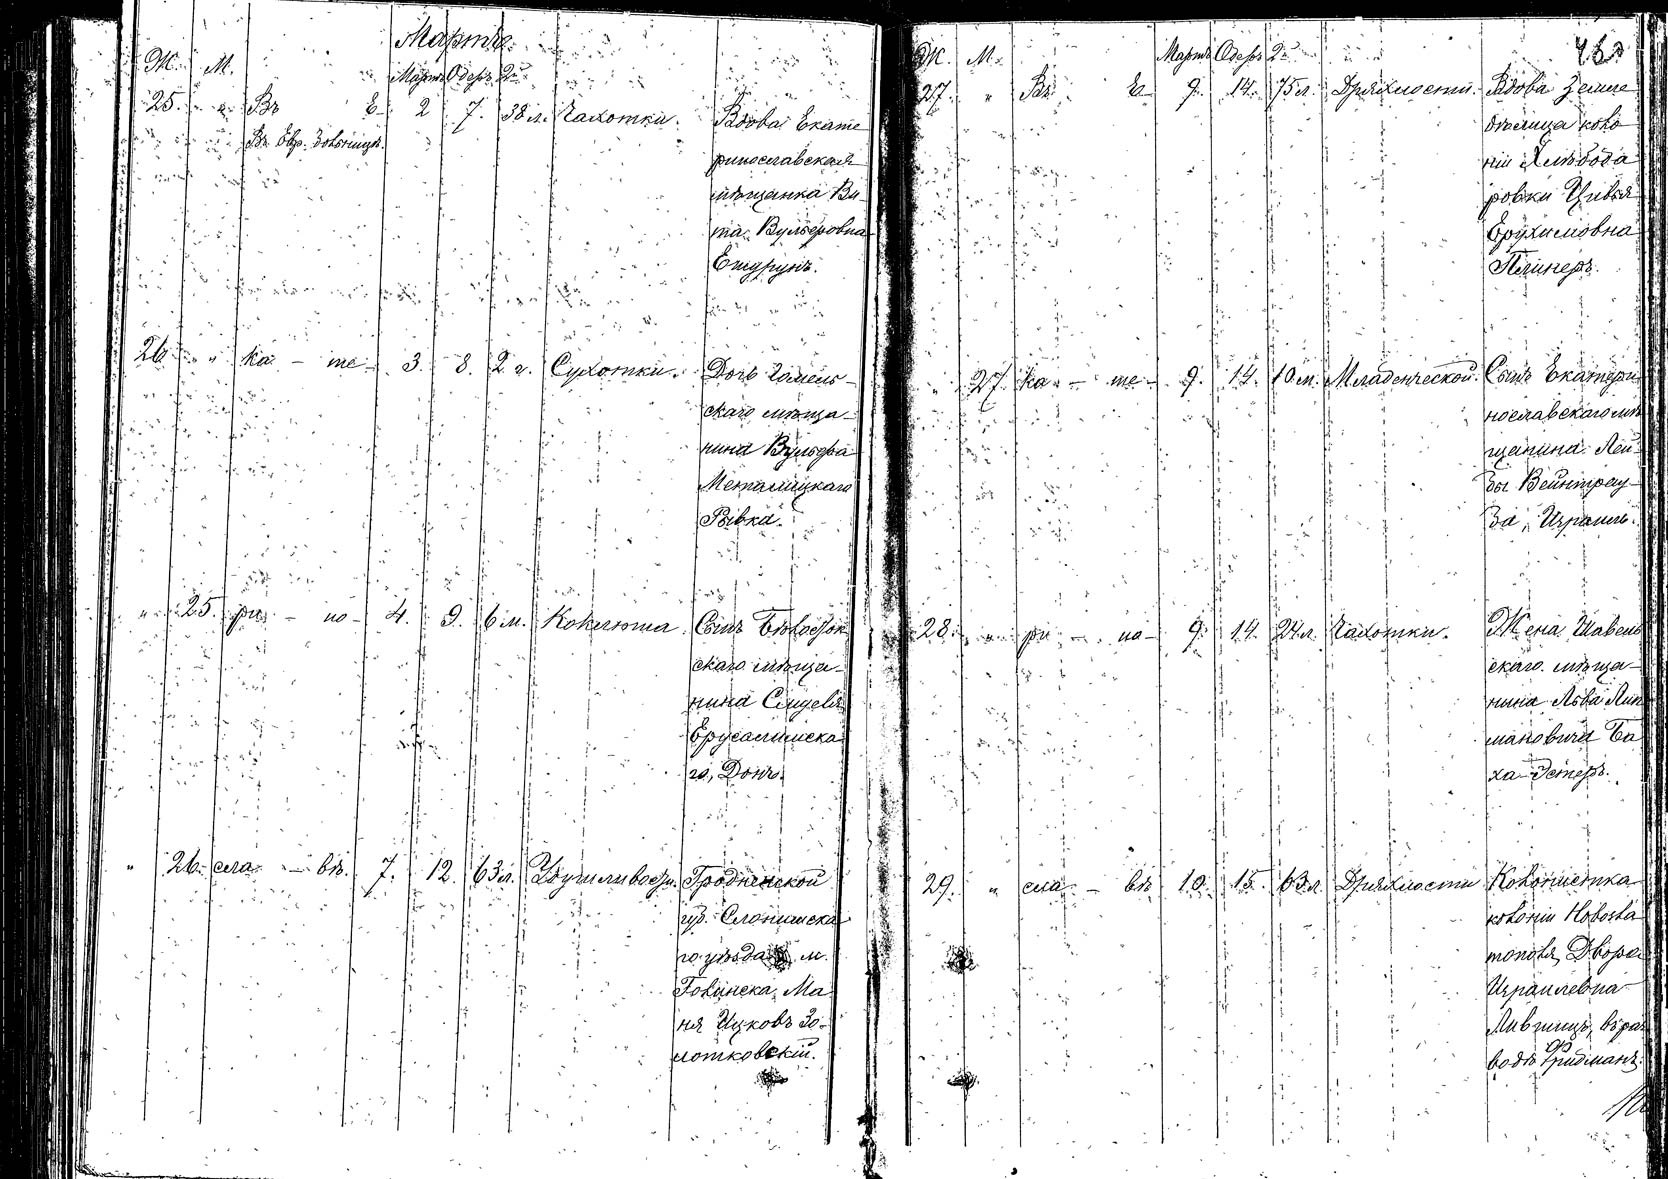 Мартъ.
Ж. М. Мартъ Одеръ 2й
25. " Въ Е- 2 7. 38 л. Чахотки. Вдова Екате
Въ Евр. больницѣ. ринославская
мѣщанка Ви
та Вульфовна
Ешурунъ.
26 " ка - те- 3. 8. 2 г. Сухотки. Дочь Гомель-
скаго мѣща-
нина Вульфа
Металицкаго
Рывка.
" 25. ри - но- 4. 9. 6 м. Коклюша Сынъ Бѣлосток
скаго мѣща-
нина
Ерусалимска
го,
" 26. сла - вѣ. 7. 12. 63 л. Удушливости. Гродненской
губ. Слонимска
го уѣзда м.
Ма
ня Ицковъ Зо-
лотковскій.
Ж. М. Мартъ Одеръ 2й
27. " Въ Е- 9. 14. 75 л. Дряхлости. Вдова Земле
дѣлица коло
ніи Хлѣбода
ровки Цивья
Ерухимовна
Плинеръ.
" 27. ка - те- 9. 14. 10 м. Младенческой. Сынъ Екатери
нославскаго мѣ
щанина Лей-
бы Вейнтрау-
ба, Израиль.
28. " ри - но- 9. 14. 24 л. Чахотки. Жена Шавель
скаго мѣща-
нина Льва Лип
мановича Ба
ха Эстеръ.
29. " сла - вѣ 10. 15. 63 л. Дряхлости Колонистка
колоніи Новозла
тополя, Двора
Израилевна
Лившицъ, въ раз
водѣ Фридманъ.